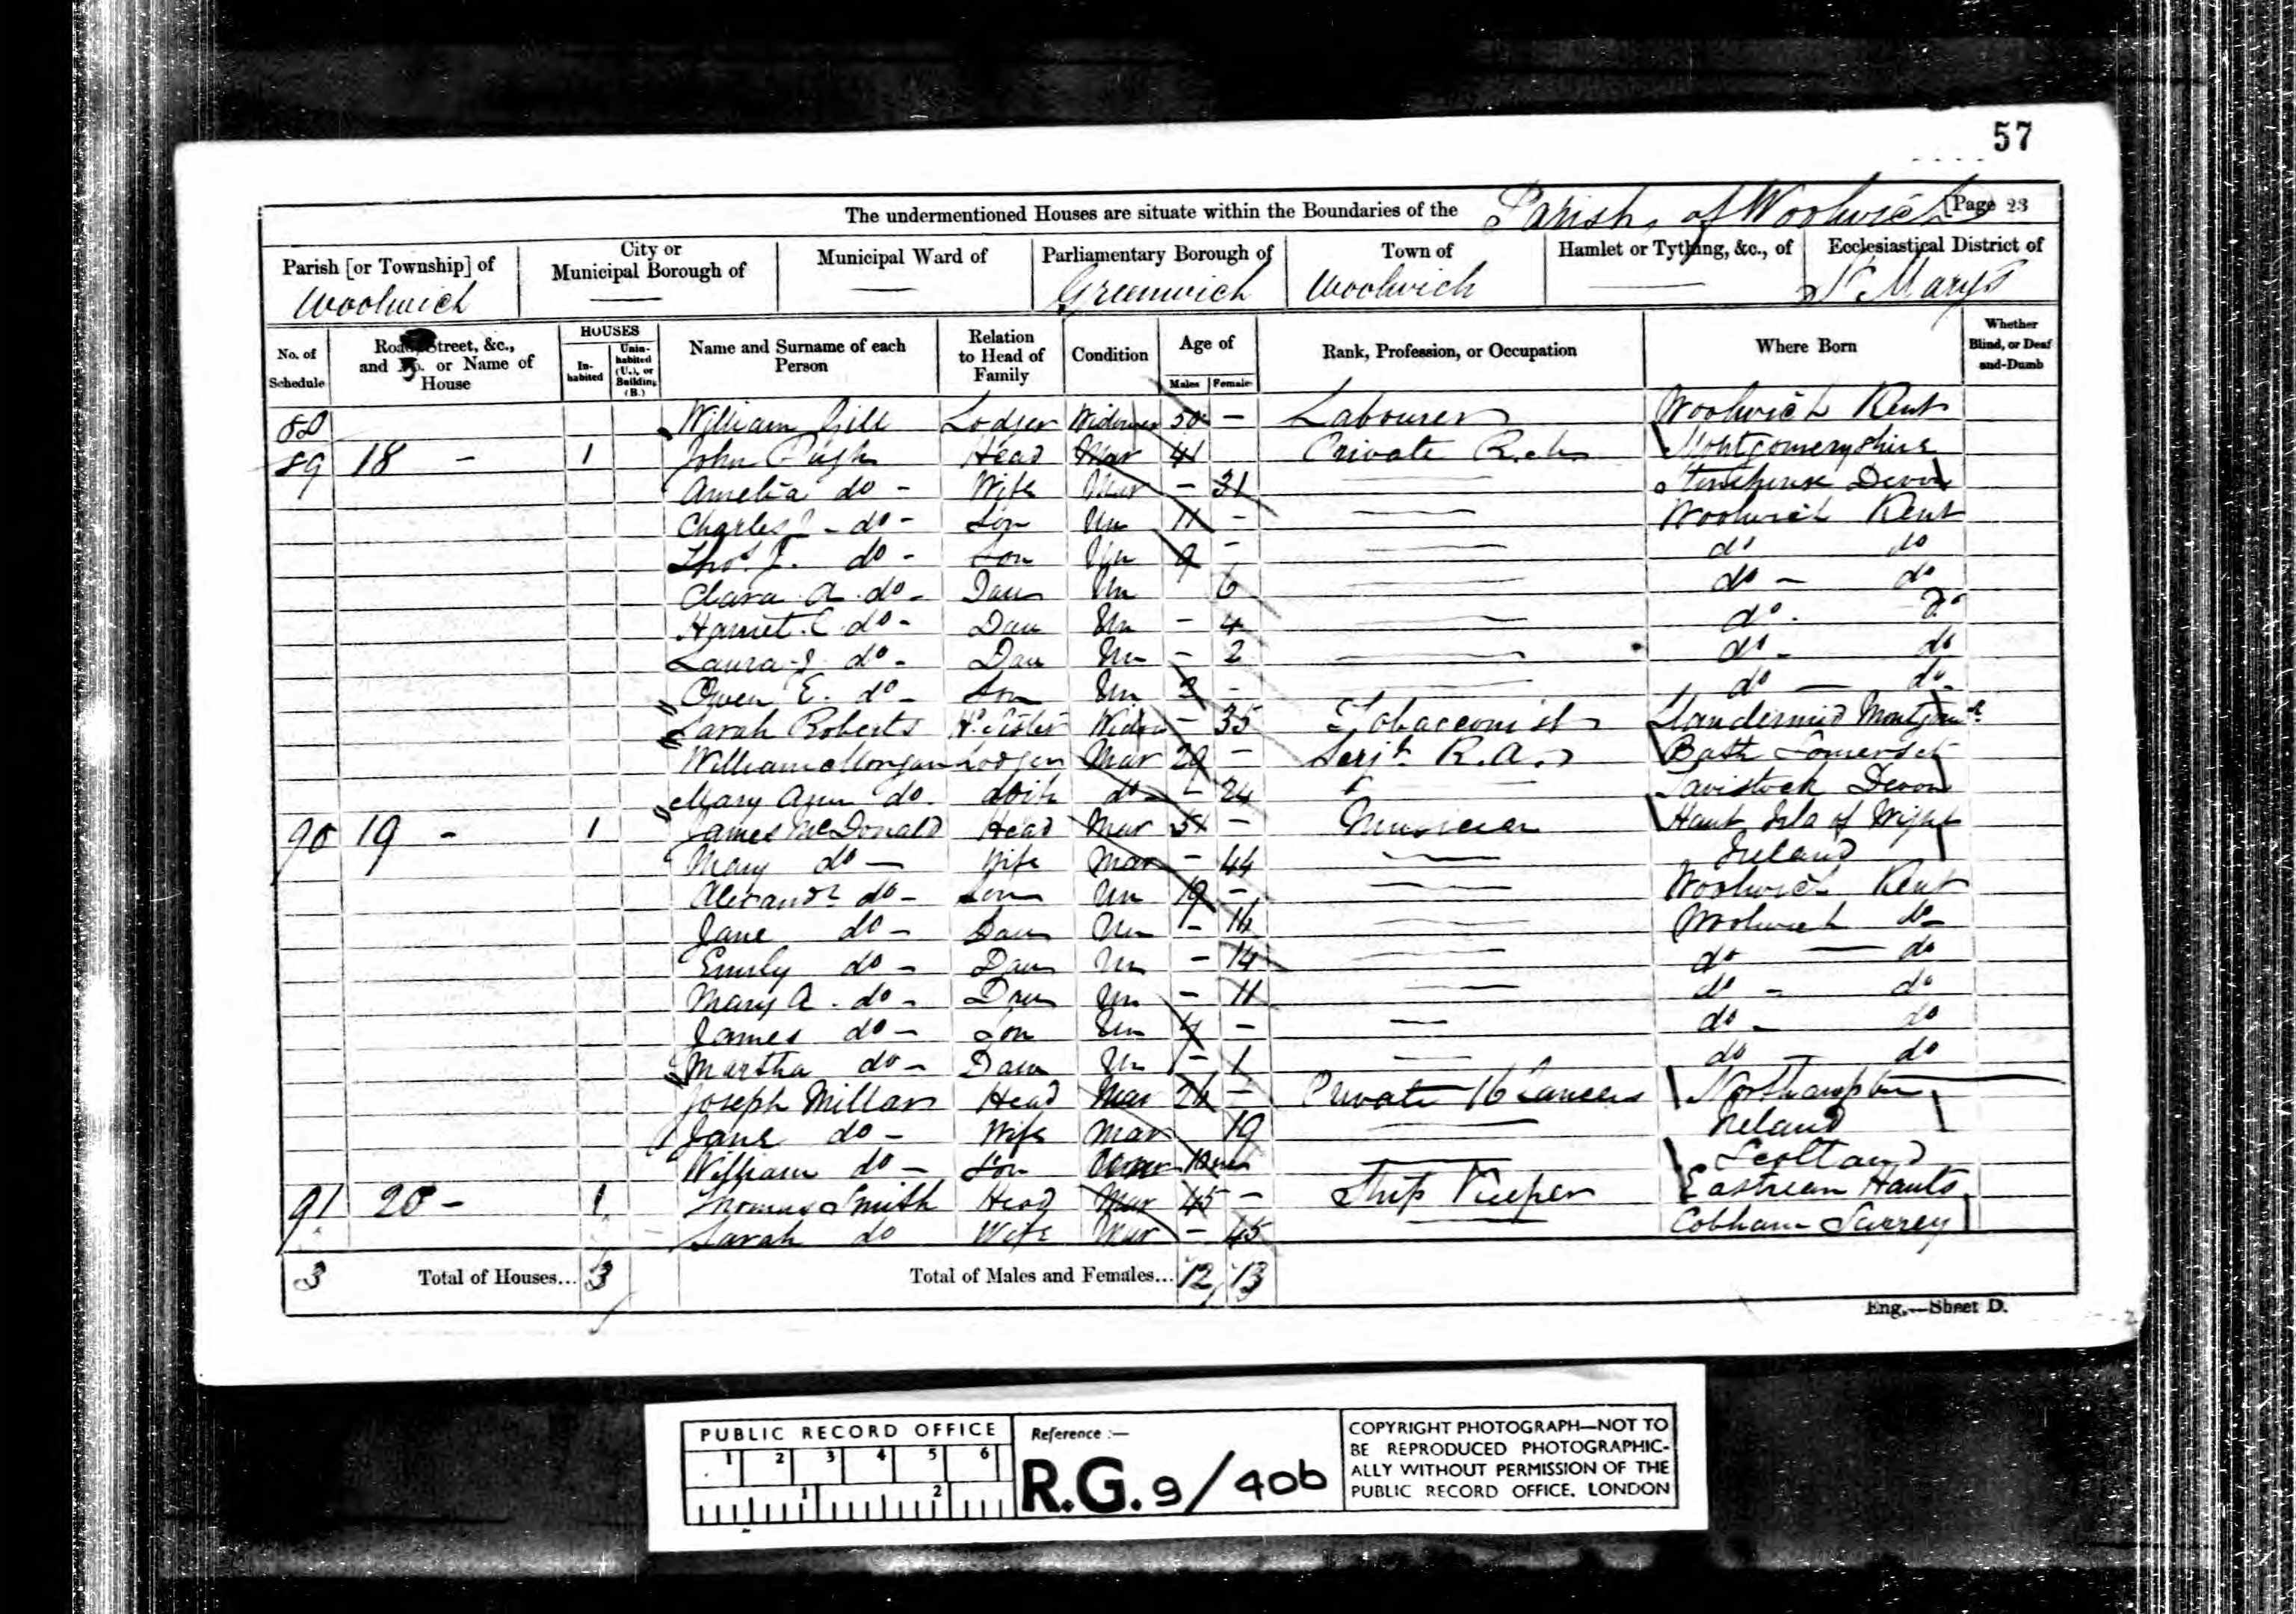 57
The undermentioned Houses are situate within the Boundaries of the Parish of Woolwich [Page 23
Parish [or Township] of Woolwich
City or Municipal Borough of —
Municipal Ward of —
Parliamentary Borough of Greenwich
Town of Woolwich
Hamlet or Tything, &c., of —
Ecclesiastical District of St Mary's
No. of Schedule
Road, Street, &c., and No. or Name of House
HOUSES
In-habited
Unin-habited (U.), or Building (B.)
Name and Surname of each Person
Relation to Head of Family
Condition
Age of
Males
Females
Rank, Profession, or Occupation
Where Born
Whether Blind, or Deaf-and-Dumb
88 William Gill Lodger Widower 50 — Labourer Woolwich Kent
89 18 — 1 John Pugh Head Mar 41 Private Montgomeryshire
Amelia do — Wife Mar — 31 — Stonehouse Devon
Charles do — Son Un 11 — — Woolwich Kent
Thos. J. do — Son Un 9 — — do do
Clara A. do — Dau Un 6 — do — do
Harriet E. do — Dau Un — 4 — do do
Laura J. do — Dau Un — 2 — do — do
Owen E. do — Son Un — — do — do
Sarah Roberts Hd. Sister Widow — 35 Tobacconist
William Morgan Lodger Mar 29 — Serjt. R.A. Bath Somerset
Mary Ann do. do — 24 — Tavistock Devon
90 19 — 1 James McDonald Head Mar 51 — Musician Isle of Wight
Mary do — Wife Mar — 44 — Ireland
Alexandr do — Son Un 19 — — Woolwich Kent
Jane do — Dau Un — — Woolwich do
Emily do — Dau Un — 14 — do — do
Mary A. do — Dau Un — 11 — do — do
James do — Son Un — — do — do
Martha do — Daur Un — 1 — do — do
Joseph Millar Head Mar — Private 16 Lancers Northampton
Jane do — Wife Mar 19 — Ireland
William do — Son — Scotland
91 20 — 1 Thomas Smith Head Mar 45 — Ship Keeper Hants
Sarah do Wife Mar — 45 — Cobham Surrey
3 Total of Houses... 3 Total of Males and Females... 12 13
Eng.—Sheet D.
PUBLIC RECORD OFFICE
1 2 3 4 5 6
1 2
Reference :—
R.G. 9/406
COPYRIGHT PHOTOGRAPH—NOT TO
BE REPRODUCED PHOTOGRAPHIC-
ALLY WITHOUT PERMISSION OF THE
PUBLIC RECORD OFFICE. LONDON